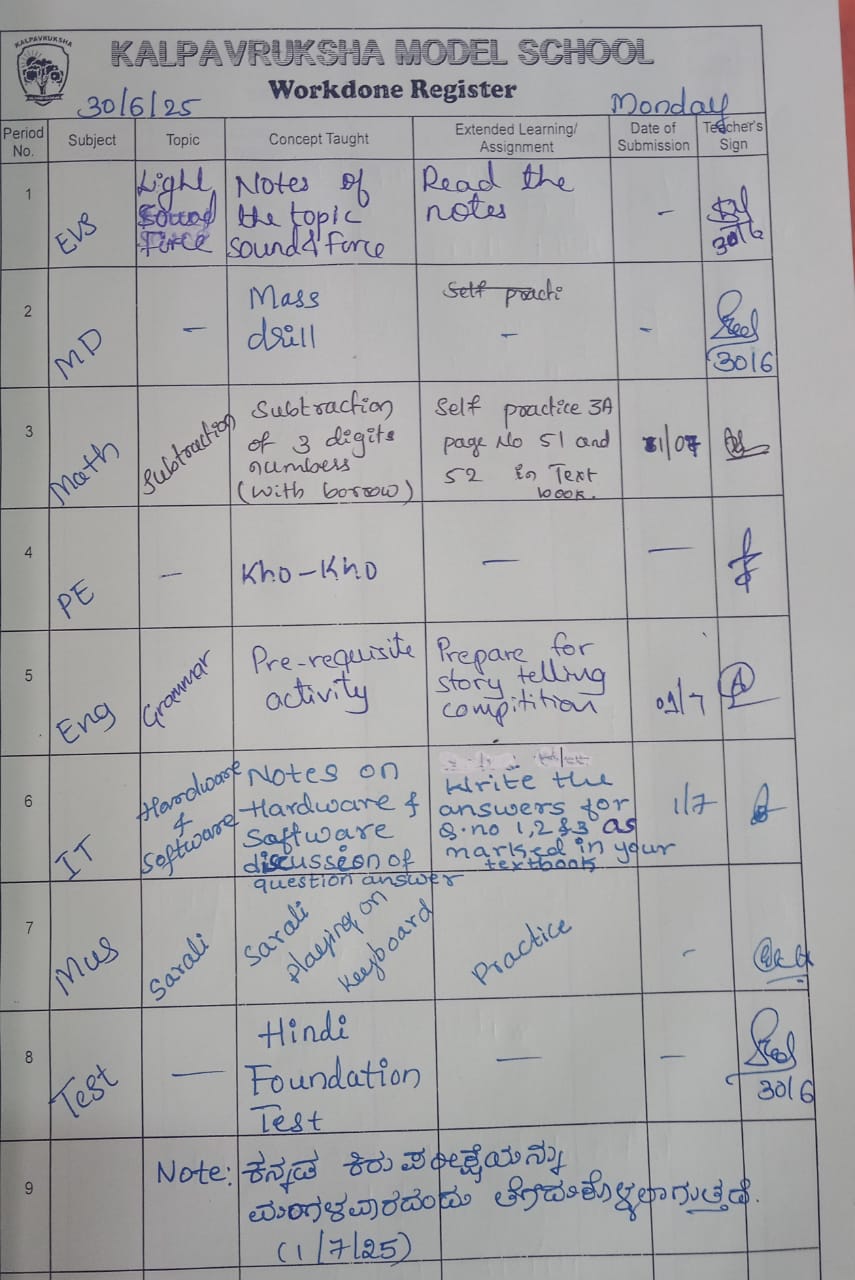 KALPAVRUKSHA
KALPAVRUKSHA MODEL SCHOOL
Workdone Register
30/6/25 Monday
Period No. Subject Topic Concept Taught Extended Learning/ Assignment Date of Submission Teacher's Sign
1 EVS Light Sound Force Notes of the topic Sound & Force Read the notes - 30/6
2 MD - Mass drill Self practi - - 30/6
3 Math Subtraction Subtraction of 3 digits numbers (with borrow) Self practice 3A page No 51 and 52 in Text book. 1/07
4 PE - Kho-Kho - -
5 Eng Grammar Pre-requisite activity Prepare for story telling compitition 01/7
6 IT Hardware & Software Notes on Hardware & Software discussion of question answer Write the answers for Q.no 1,2 & 3 as marked in your textbook 1/7
7 Mus Sarali Sarali playing on Keyboard Practice -
8 Test - Hindi Foundation Test - - 30/6
9 Note: ಕನ್ನಡ ಕಿರು ಪರೀಕ್ಷೆಯನ್ನು
ಮಂಗಳವಾರದಂದು ತೆಗೆದುಕೊಳ್ಳಲಾಗುತ್ತದೆ.
(1/7/25)